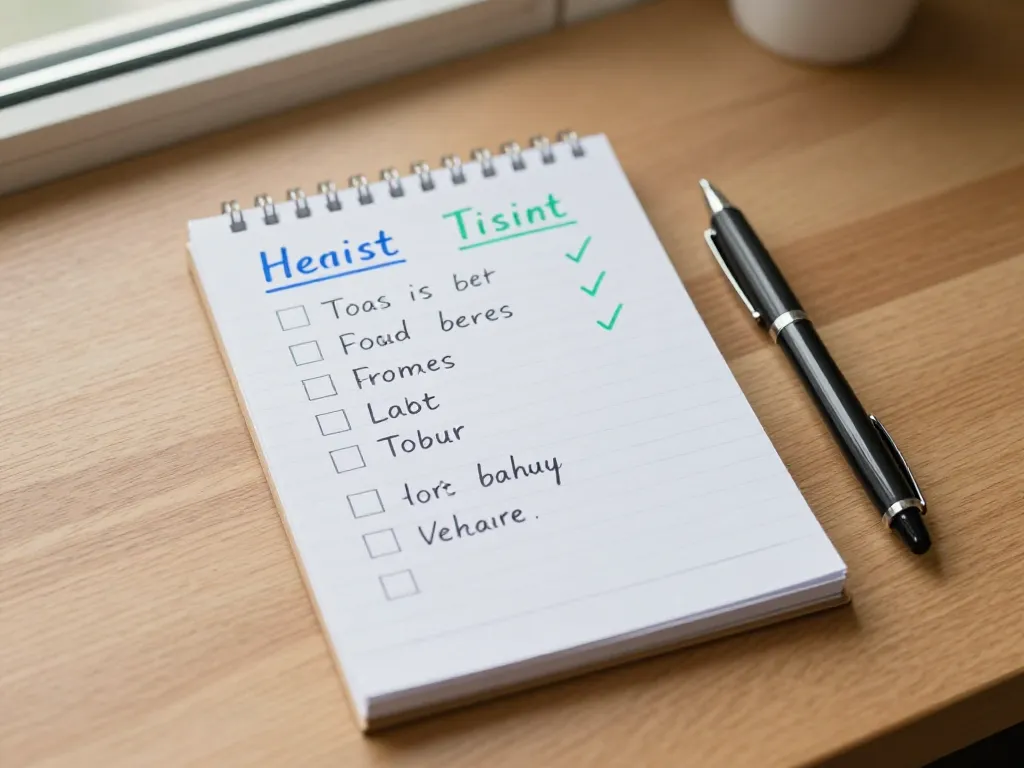 Henist Tisint
Toas is bet
Foud beres
Fromes
Labt
Tobur
bahuy
Vehaire.